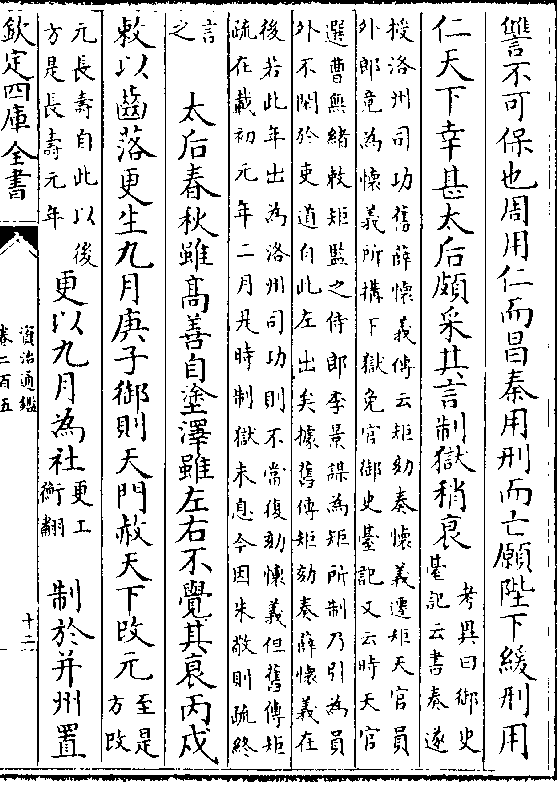 讐不可保也周用仁而昌秦用刑而亡願陛下緩刑用
仁天下幸甚太后頗采其言制獄稍衰
考異曰御史
臺記云書奏遂
授洛州司功舊薛懷義傳云矩劾奏懷義遷矩天官員
外郎竟為懷義所搆下獄免官御史臺記又云時天官
選曹無緒敕矩監之侍郎李景諶為矩所制乃引為員
外不閑於吏道自此左出矣據舊傳矩劾奏薛懷義在
後若此年出為洛州司功則不當復劾懷義但舊傳矩
疏在載初元年二月是時制獄未息今因朱敬則疏終
言
之
太后春秋雖高善自塗澤雖左右不覺其衰丙戍
敕以齒落更生九月庚子御則天門赦天下改元
至是
方改
元長壽自此以後
方是長壽元年
更以九月為社
更工
衡翻
制於并州置
欽定四庫全書
資治通鑑
卷二百五
十二